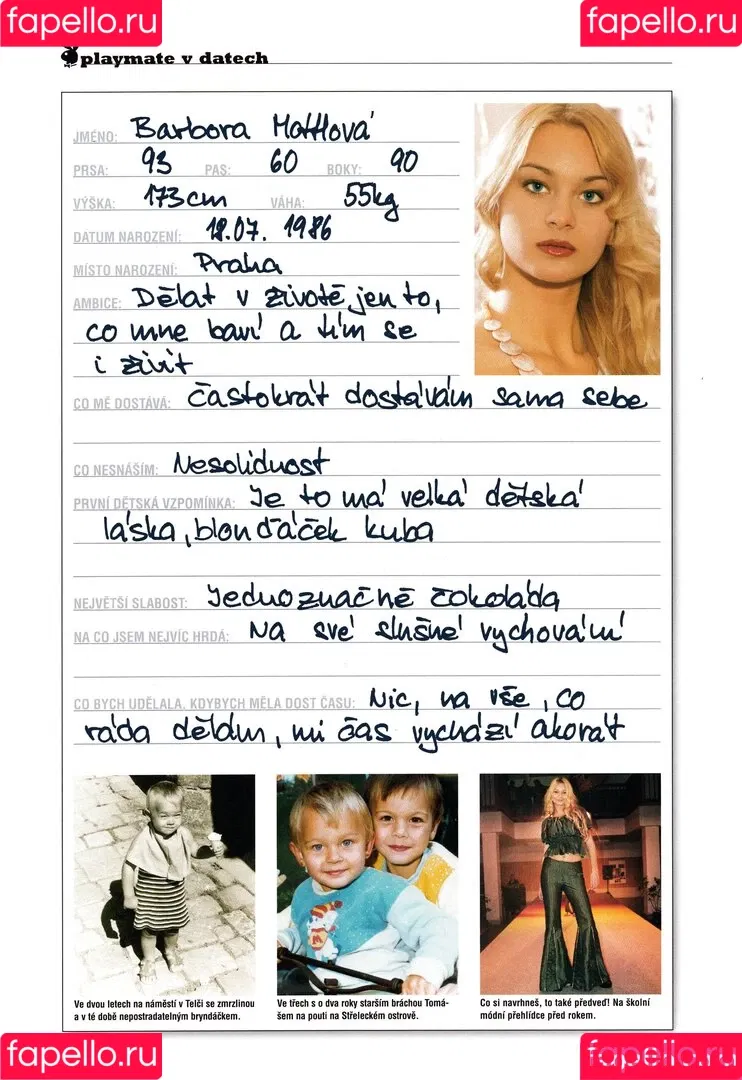 fapello.ru fapello.ru
playmate v datech
JMÉNO: Barbora Mottlová
PRSA: 93 PAS: 60 BOKY: 90
VÝŠKA: 173 cm VÁHA: 55kg
DATUM NAROZENÍ: 18.07. 1986
MÍSTO NAROZENÍ: Praha
AMBICE: Dělat v životě jen to,
co mne baví a tím se
i živit
CO MĚ DOSTÁVÁ: Častokrát dostávám sama sebe
CO NESNÁŠÍM: Nesolidnost
PRVNÍ DĚTSKÁ VZPOMÍNKA: Je to má velká dětská
láska, blonďáček kuba
NEJVĚTŠÍ SLABOST: Jednoznačně čokoláda
NA CO JSEM NEJVÍC HRDÁ: Na své slušné vychování
CO BYCH UDĚLALA, KDYBYCH MĚLA DOST ČASU: Nic, na vše, co
ráda dělám, mi čas vychází akorát
Ve dvou letech na náměstí v Telči se zmrzlinou
a v té době nepostradatelným bryndáčkem.
Ve třech s o dva roky starším bráchou Tomá-
šem na pouti na Střeleckém ostrově.
Co si navrhneš, to také předveď! Na školní
módní přehlídce před rokem.
fapello.ru fapello.ru